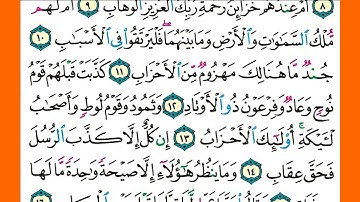 ٨ أَمْ عِندَهُمْ خَزَآئِنُ رَحْمَةِ رَبِّكَ ٱلْعَزِيزِ ٱلْوَهَّابِ ٩ أَمْ لَهُم
مُّلْكُ ٱلسَّمَـٰوَٰتِ وَٱلْأَرْضِ وَمَا بَيْنَهُمَا ۖ فَلْيَرْتَقُوا۟ فِى ٱلْأَسْبَـٰبِ ١٠
جُندٌ مَّا هُنَالِكَ مَهْزُومٌ مِّنَ ٱلْأَحْزَابِ ١١ كَذَّبَتْ قَبْلَهُمْ قَوْمُ
نُوحٍ وَعَادٌ وَفِرْعَوْنُ ذُو ٱلْأَوْتَادِ ١٢ وَثَمُودُ وَقَوْمُ لُوطٍ وَأَصْحَـٰبُ
لْـَٔيْكَةِ ۚ أُو۟لَـٰٓئِكَ ٱلْأَحْزَابُ ١٣ إِن كُلٌّ إِلَّا كَذَّبَ ٱلرُّسُلَ
فَحَقَّ عِقَابِ ١٤ وَمَا يَنظُرُ هَـٰٓؤُلَآءِ إِلَّا صَيْحَةً وَٰحِدَةً مَّا لَهَا